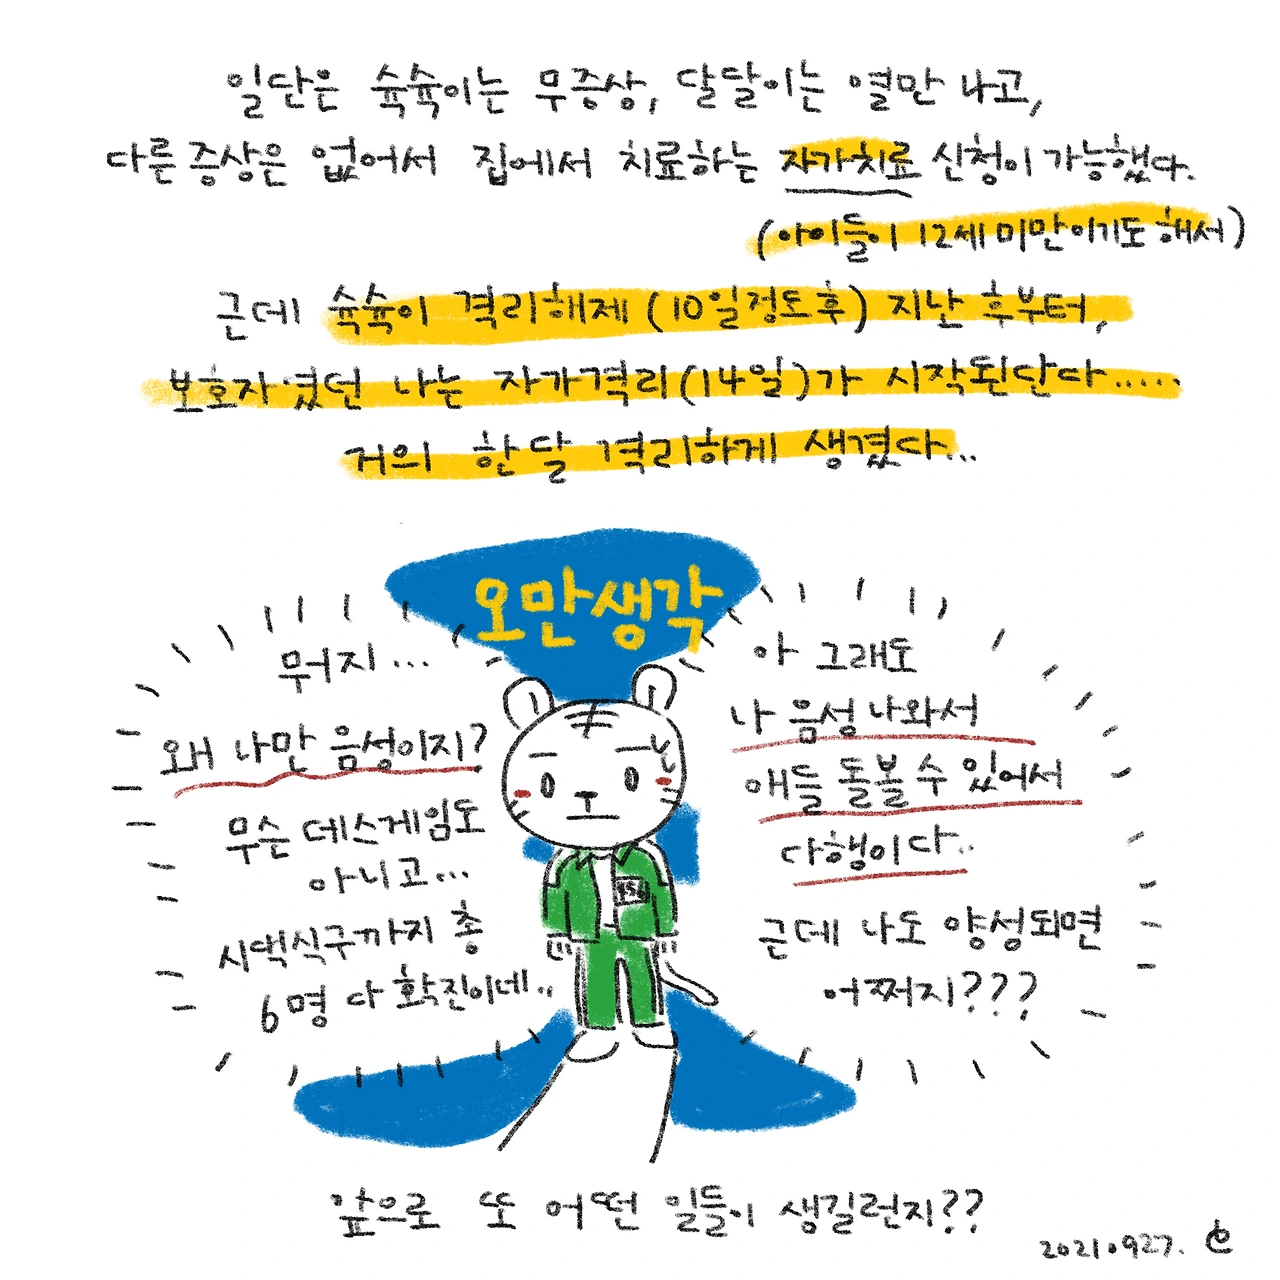 일단은 슉슉이는 무증상, 달달이는 열만 나고,
다른 증상은 없어서 집에서 치료하는 자가치료 신청이 가능했다.
(아이들이 12세 미만이기도 해서)
근데 슉슉이 격리해제 (10일정도 후) 지난 후부터,
보호자였던 나는 자가격리(14일)가 시작된단다.....
거의 한달 격리하게 생겼다..
오만생각
뭐지...
왜 나만 음성이지?
무슨 데스게임도
아니고...
시댁식구까지 총
6명 다 확진이네..
아 그래도
나 음성 나와서
애들 돌볼 수 있어서
다행이다..
근데 나도 양성되면
어쩌지???
456
앞으로 또 어떤 일들이 생길런지??
20210927.